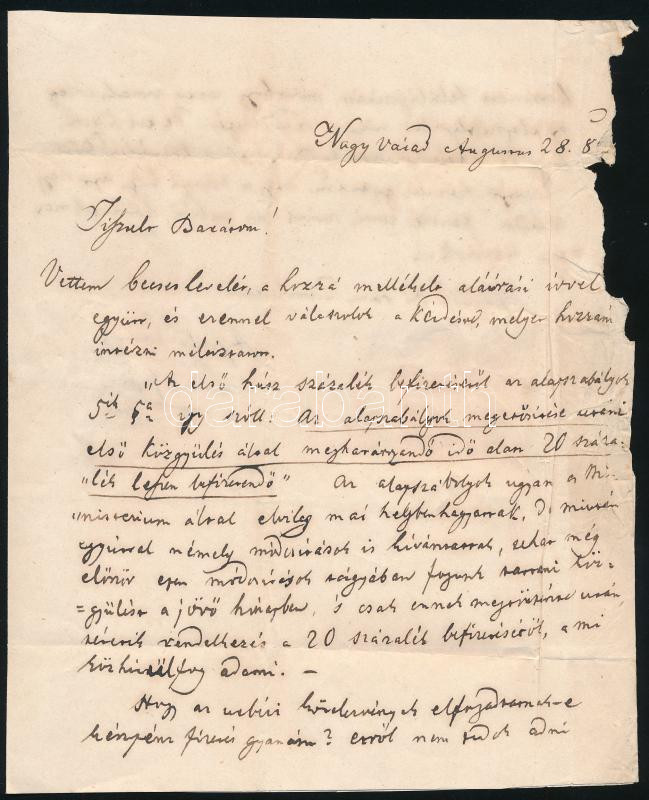 Nagy Várad Augusztus 28. 8
Tisztelt Barátom!
Vettem becses levelét, a hozzá mellékelt aláírási ívvel
együtt, és ezennel válaszolok a kérdésre, melyet hozzám
intézni méltóztatott.
„Az első húsz százalék befizetéséről az alapszabályok
5ik §a így szól: Az alapszabályok megerősítése utáni
első közgyűlés által meghatározandó idő alatt 20 száza-
„lék leszen befizetendő" Az alapszabályok ugyan a Mi-
„nisterium által elvileg már helybenhagyattak, de miután
egyúttal némely módosítások is kívántattak, tehát még
először ezen módosítások tárgyában fogunk tartani köz-
=gyűlést a jövő hónapban, s csak ennek megerősítése után
tétetik rendelkezés a 20 százalék befizetéséről, a mi
közhírül fog adatni. —
Hogy az urbéri kötelezvények elfogadtatnak-e
készpénz fizetés gyanánt? erről nem tudok adni
databanth